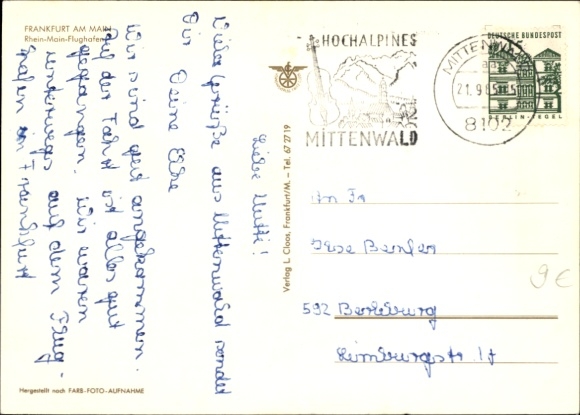 FRANKFURT AM MAIN
Rhein-Main-Flughafen
Liebe Mutti!
Viele Grüße aus Mittenwald sendet
Dir Deine Elke
Wir sind gut angekommen.
Auf der Fahrt ist alles gut
gegangen. Wir waren
unterwegs auf dem Flug-
hafen in Frankfurt
HOCHALPINES
MITTENWALD
MITTENWALD
21.9.65
8102
DEUTSCHE BUNDESPOST
15
BERLIN-TEGEL
Verlag L. Cloos, Frankfurt/M. – Tel. 67 27 19
An Fr
592 Berleburg
Limburgstr 17
9€
Hergestellt nach FARB-FOTO-AUFNAHME